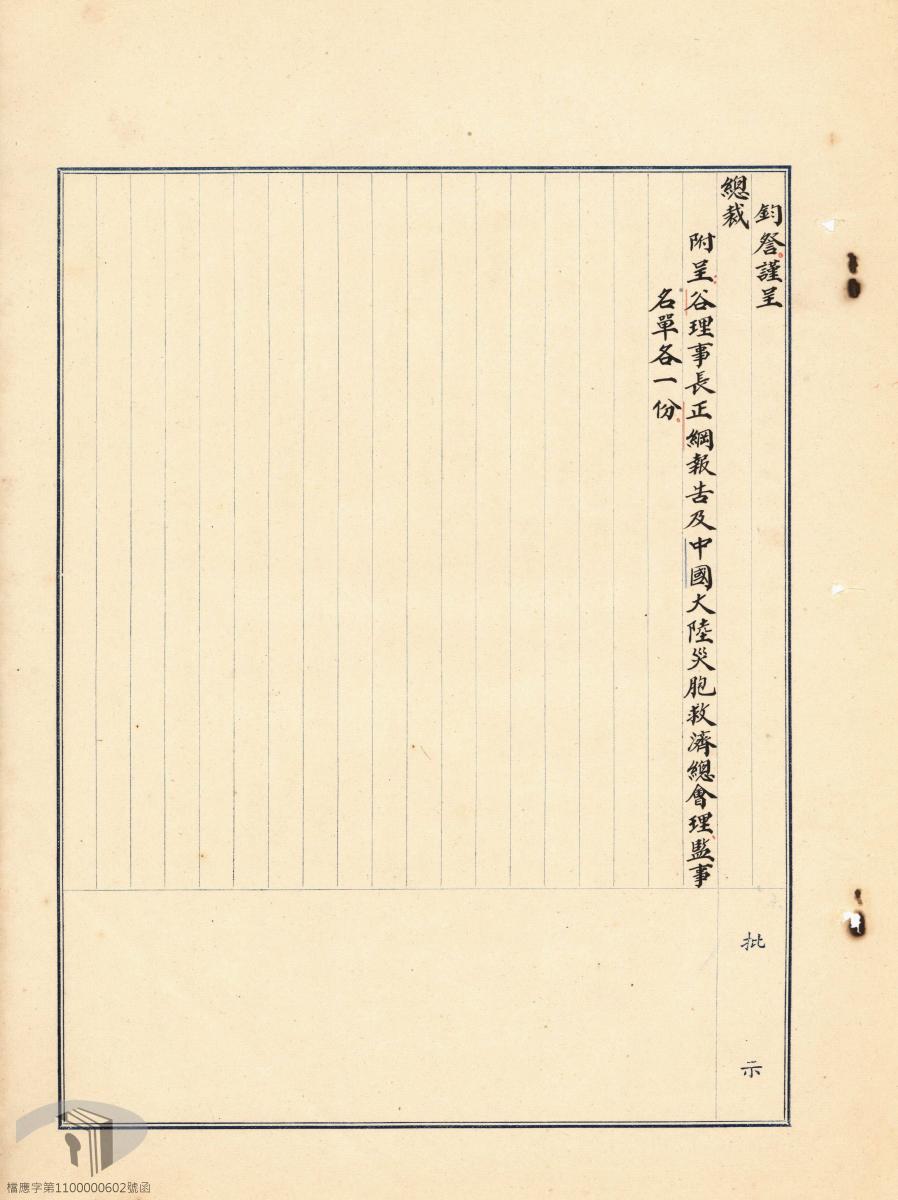 鈞詧謹呈
總裁
附呈谷理事長正綱報告及中國大陸災胞救濟總會理監事
名單各一份
批示
檔應字第1100000602號函